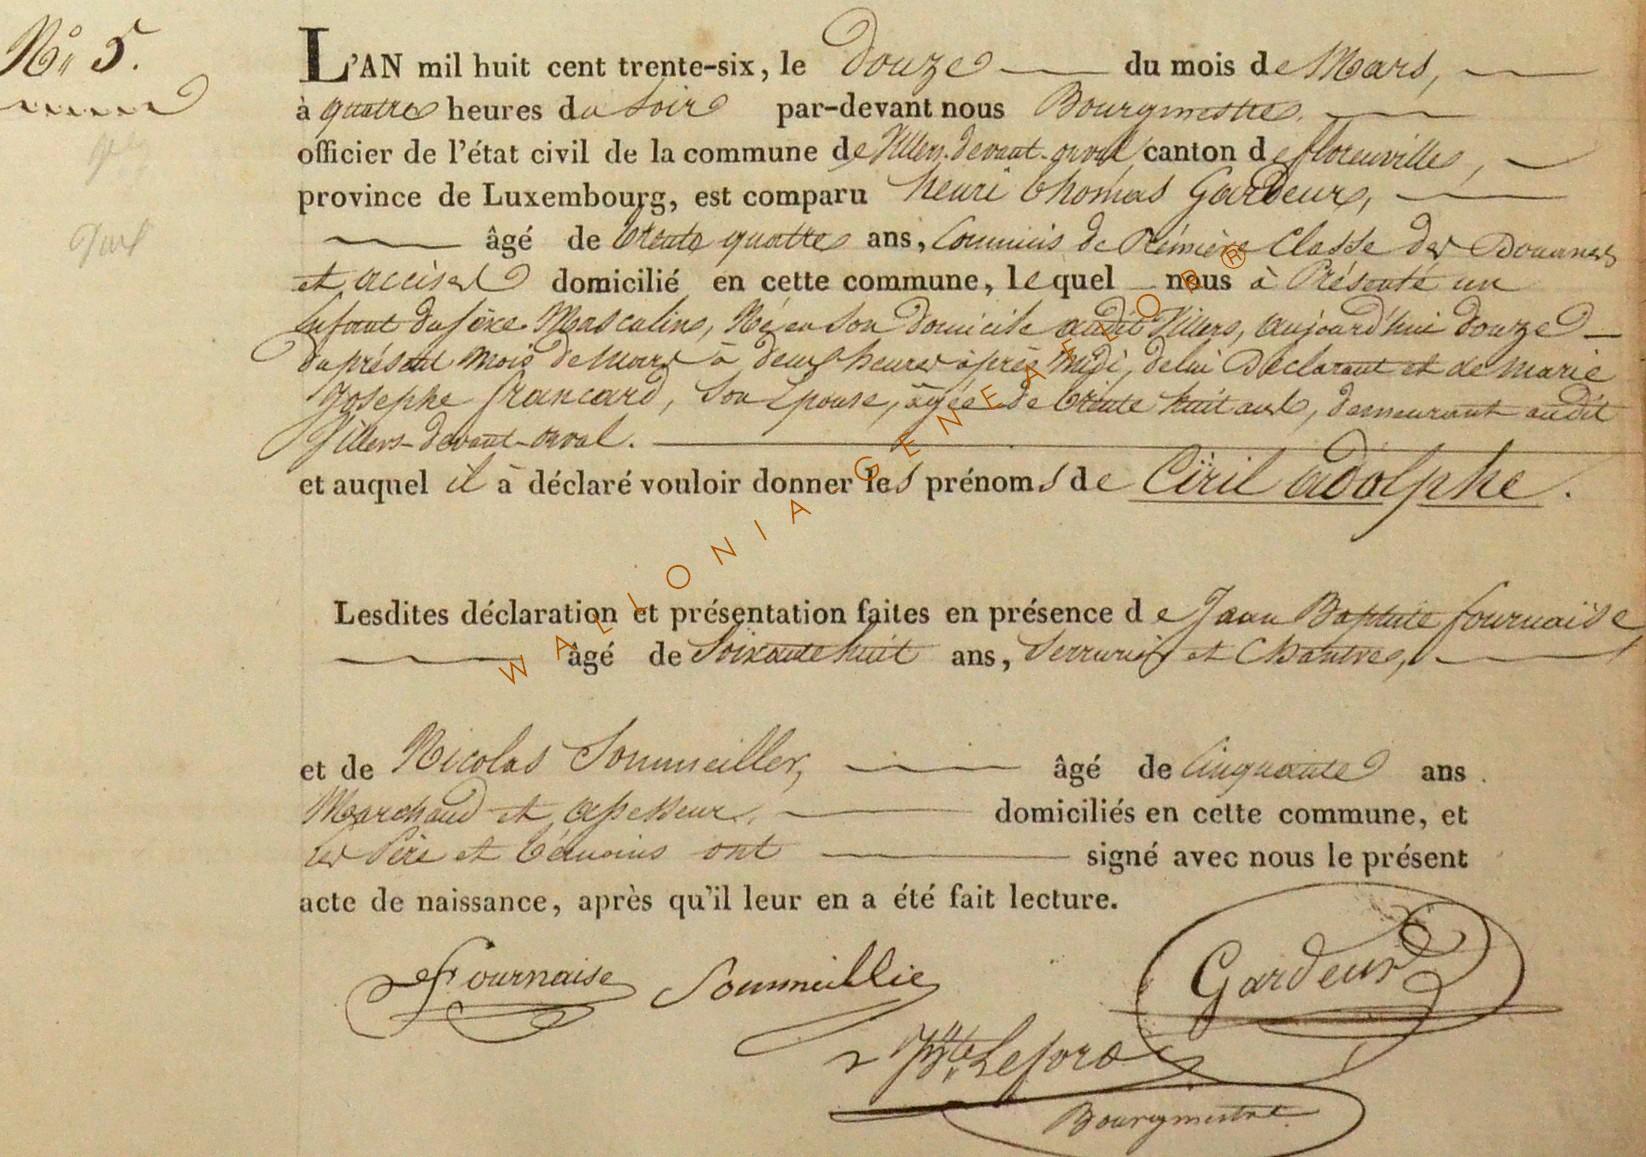 N° 5.
L'AN mil huit cent trente-six, le Douze du mois de Mars,
à quatre heures du Soir par-devant nous Bourgmestre,
officier de l'état civil de la commune de Villers-devant-orval canton de florenville,
province de Luxembourg, est comparu henri thomas Gardeur,
âgé de trente quatre ans, Commis de Première Classe des Douanes
et accises domicilié en cette commune, lequel nous à Présenté un
Enfant du sèxe Masculine, Né en Son domicile audit Villers, aujourd'hui douze
du présent mois de Mars à deux heures après Midi, de lui Déclarant et de marie
Josephe francard, Son Epouse, âgée de trente huit ans, demeurant audit
Villers-devant-orval.
et auquel il à déclaré vouloir donner les prénoms de Ciril adolphe.
Lesdites déclaration et présentation faites en présence de Jean Baptiste fournaise
âgé de Soixante huit ans, Serrurier et Chantre,
et de Nicolas Sommeiller, âgé de Cinquante ans
Marchand et assesseur, domiciliés en cette commune, et
les Père et témoins ont signé avec nous le présent
acte de naissance, après qu'il leur en a été fait lecture.
Fournaise Sommeillie Gardeur
Bourgmestre
WALLONIA GENEAFLOBR®